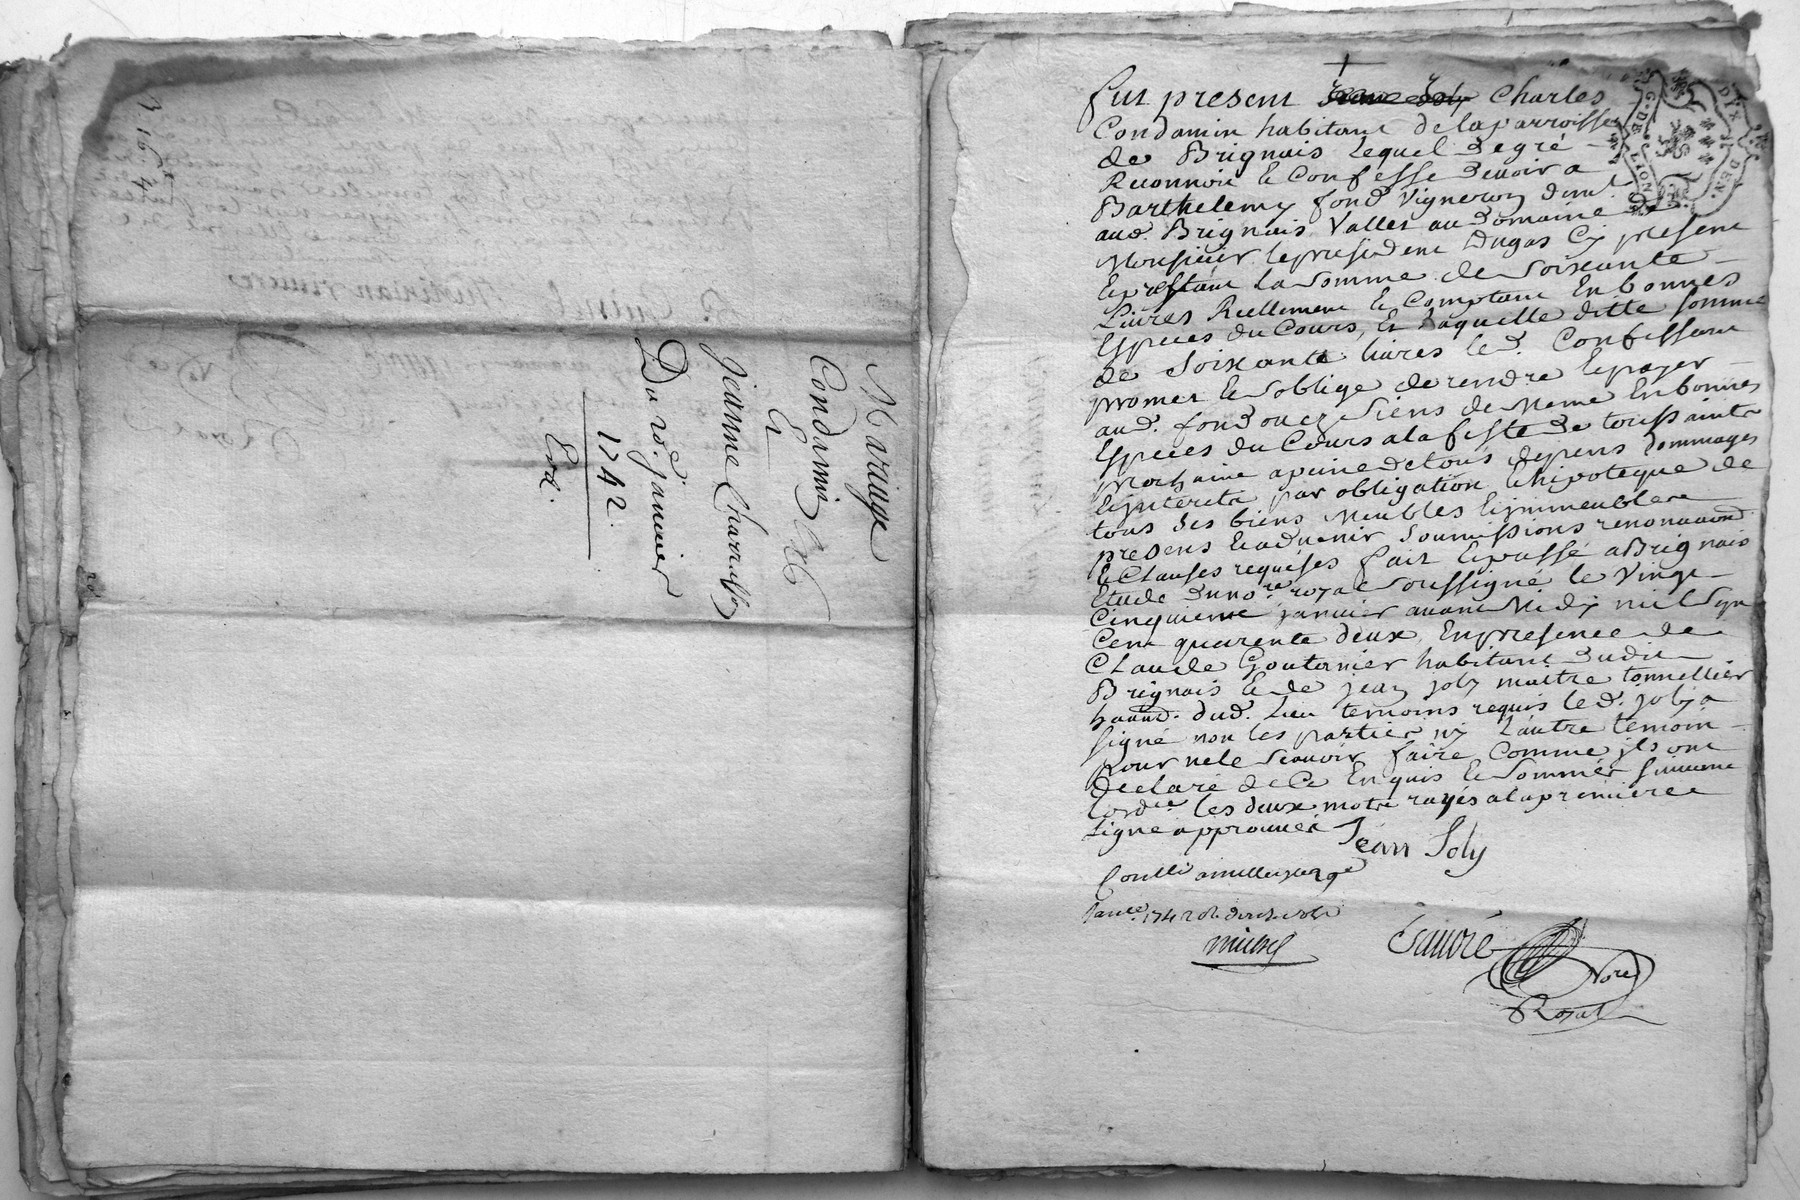 Mariage
Condamin
Et
Jeanne Charrasson
Du 20e. janvier
1742.
Exd.
fut present Charles
Condamin habitant de la parroisse
de Brignais Lequel de gré
Reconnoit et Confesse devoir a
Barthelemy fond Vigneron demt.
aud. Brignais Vallet au domaine de
Monsieur le president Dugas Cy present
et acceptant la Somme de Soixante
Livres Reellement et Comptant En bonnes
Especes du Cours, Et Laquelle ditte somme
de Soixante livres led. Confessant
promet et soblige de rendre et payer
aud. fond ou ez Siens de Meme En bonnes
Especes du Cours a la feste de toussaintz
prochaine a peine de tous depens dommages
et jnterets par obligation et hipoteque de
tous ses biens Meubles et jmmeubles
presens et advenir Soumissions renonciaons.
et Clauses requises fait et passé a Brignais
Etude du nore. royal soussigné le Vingt
Cinquieme janvier avant Midy mil Sept
Cent quarente deux, En presence de
Claude Goutarnier habitant dudit
Brignais et de jean joly maitre tonnellier
habitand. dud. Lieu temoins requis led. joly a
signé non les parties ny L'autre temoin
pour ne le Scavoir faire Comme jls ont
declaré de Ce Enquis et Sommés suivant
lordce les deux mots rayés a la premiere
Ligne approuvés
Jean Joly
Conllé a millery le
janer. 1742
michel
Nore
Royal
G. DE LION
DIX DEN.